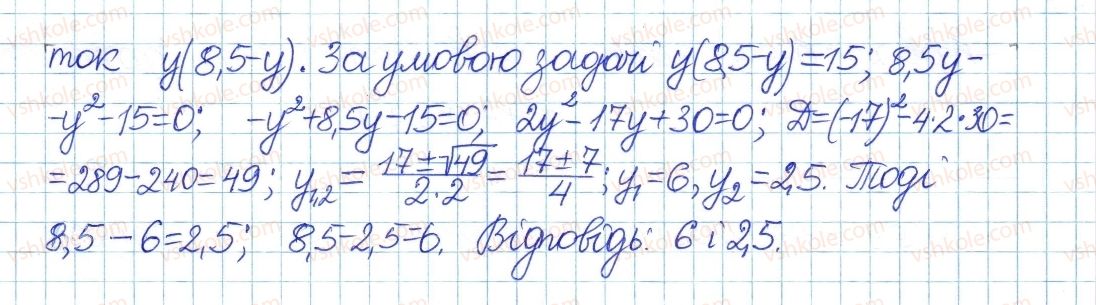 ток y(8,5-y). За умовою задачі y(8,5-y)=15; 8,5y-
-y²-15=0; -y²+8,5y-15=0; 2y²-17y+30=0; D=(-17)²-4·2·30=
=289-240=49; y₁,₂ = (17±√49)/(2·2) = (17±7)/4; y₁=6, y₂=2,5. Тоді
8,5-6=2,5; 8,5-2,5=6. Відповідь: 6 і 2,5.